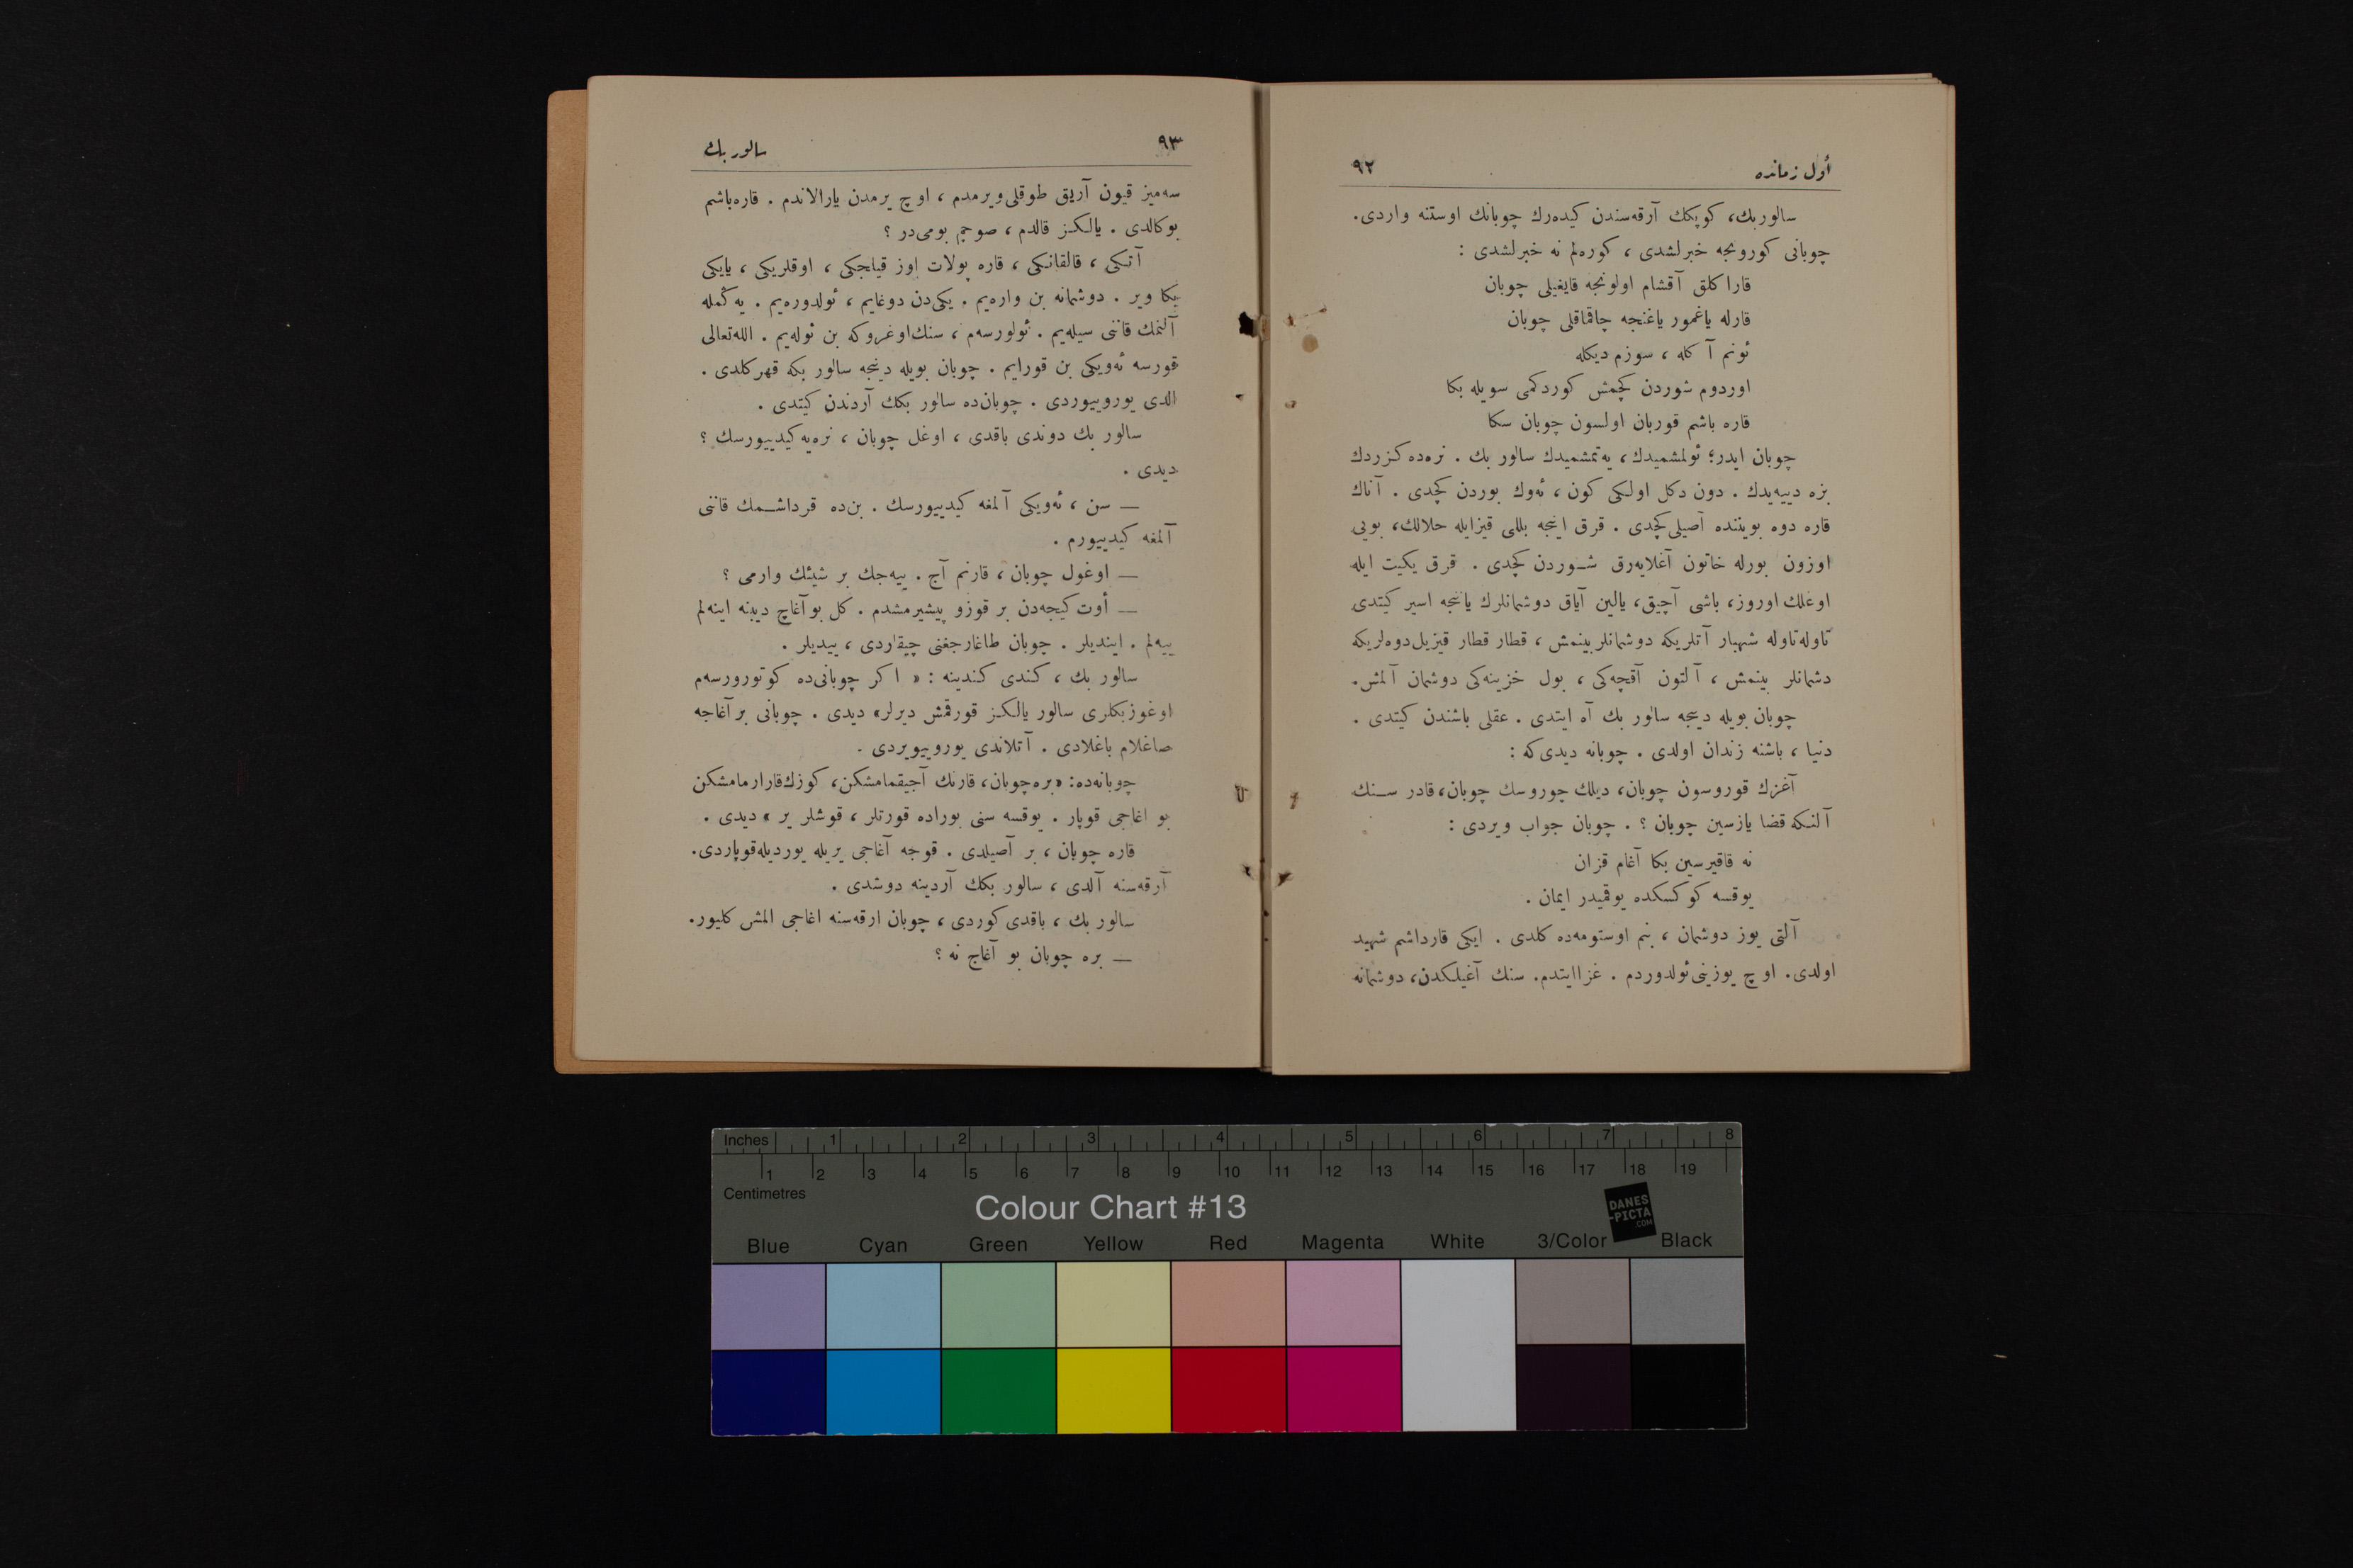 أول زمانده
٩٢
سالوربك، كوپكك آرقه‌سندن كيده‌رك چوبانك اوستنه واردى.
چوبانى كورونجه خبرلشدى ، كوره‌لم نه خبرلشدى :
قاراكلق آقشام اولونجه قايغيلى چوبان
قارله ياغمور ياغنجه چاقماقلى چوبان
ئونم آ كله ، سوزم ديكله
اوردوم شوردن كچمش كوردكمى سويله بكا
قاره باشم قوربان اولسون چوبان سكا
چوبان ايدر؛ ئولمشميدك، يه‌تمشميدك سالور بك . نره‌ده كزردك
نره دييه‌يدك . دون دكل اولكى كون ، ئه‌وك بوردن كچدى . آناك
قاره دوه بويننده آصيلى كچدى . قرق اينجه بللى قيزايله حلالك، بويى
اوزون بورله خاتون آغلايه‌رق شـوردن كچدى . قرق يكيت ايله
اوغلك اوروز، باشى آچيق، يالين آياق دوشمانلرك يانجه اسير كيتدى
تاوله تاوله شهبار آتلريكه دوشمانلر بينمش ، قطار قطار قيزيل دوه‌لريكه
دشمانلر بينمش ، آلتون آقچه‌كى ، بول خزينه‌كى دوشمان آلمش.
چوبان بويله دينجه سالور بك آه ايتدى . عقلى باشندن كيتدى .
دنيا ، باشنه زندان اولدى . چوبانه ديدى كه :
آغزك قوروسون چوبان، ديلك چوروسك چوبان، قادر سـنك
آلنكه قضا يازسين چوبان ؟ . چوبان جواب ويردى :
نه قاقيرسين بكا آغام قزان
يوقسه كوكسكده يوقميدر ايمان .
آلتى يوز دوشمان ، بنم اوستومه‌ده كلدى . ايكى قارداشم شهيد
اولدى. اوچ يوزينى ئولدوردم . غزاايتدم. سنك آغيلكدن، دوشمانه
٩٣
سالور بك
سه‌ميز قيون آريق طوقلى ويرمدم ، اوچ يرمدن يارالاندم . قاره‌باشم
بوكالدى . يالكـز قالدم ، صوجم بومى‌در ؟
آتكى ، قالقانكى ، قاره پولات اوز قيلجكى ، اوقلريكى ، يايكى
بكا وير . دوشمانه بن واره‌يم . يكى‌دن دوغايم ، ئولدوره‌يم . يه‌كمله
آلنمك قاننى سيله‌يم . ئولورسه‌م ، سنك اوغروكه بن ئوله‌يم . الله‌تعالى
قورسه ئه‌ويكى بن قورايم . چوبان بويله دينجه سالور بكه قهر كلدى .
الدى يورويیوردى . چوبان‌ده سالور بكك آردندن كيتدى .
سالور بك دوندى باقدى ، اوغل چوبان ، نره‌يه كيدييورسك ؟
ديدى .
— سن ، ئه‌ويكى آلمغه كيدييورسك . بن‌ده قرداشـمك قاننى
آلمغه كيدييورم .
— اوغول چوبان ، قارنم آج . ييه‌جك بر شيئك وارمى ؟
— أوت كيجه‌دن بر قوزو پيشيرمشدم . كل بو آغاچ ديبنه اينه‌لم
ييه‌لم . اينديلر . چوبان طاغارجغنى چيقاردى ، ييديلر .
سالور بك ، كندى كندينه : « اكر چوبانى‌ده كوتورورسه‌م
اوغوزبكلرى سالور يالكـز قورقمش ديرلر» ديدى . چوبانى بر آغاجه
صاغلام باغلادى . آتلاندى يورويیويردى .
چوبانه‌ده: «بره چوبان، قارنك آجيقمامشكن، كوزك قارارمامشكن
بو اغاجى قوپار . يوقسه سنى بوراده قورتلر ، قوشلر ير » ديدى .
قاره چوبان ، بر آصيلدى . قوجه آغاجى يريله يورديله قوپاردى.
آرقه‌سنه آلدى ، سالور بكك آردينه دوشدى .
سالور بك ، باقدى كوردى ، چوبان ارقه‌سنه اغاجى المش كليور.
— بره چوبان بو آغاج نه ؟
Inches 1 2 3 4 5 6 7 8
1 2 3 4 5 6 7 8 9 10 11 12 13 14 15 16 17 18 19
Centimetres
Colour Chart #13
DANES
-PICTA
.COM
Blue Cyan Green Yellow Red Magenta White 3/Color Black